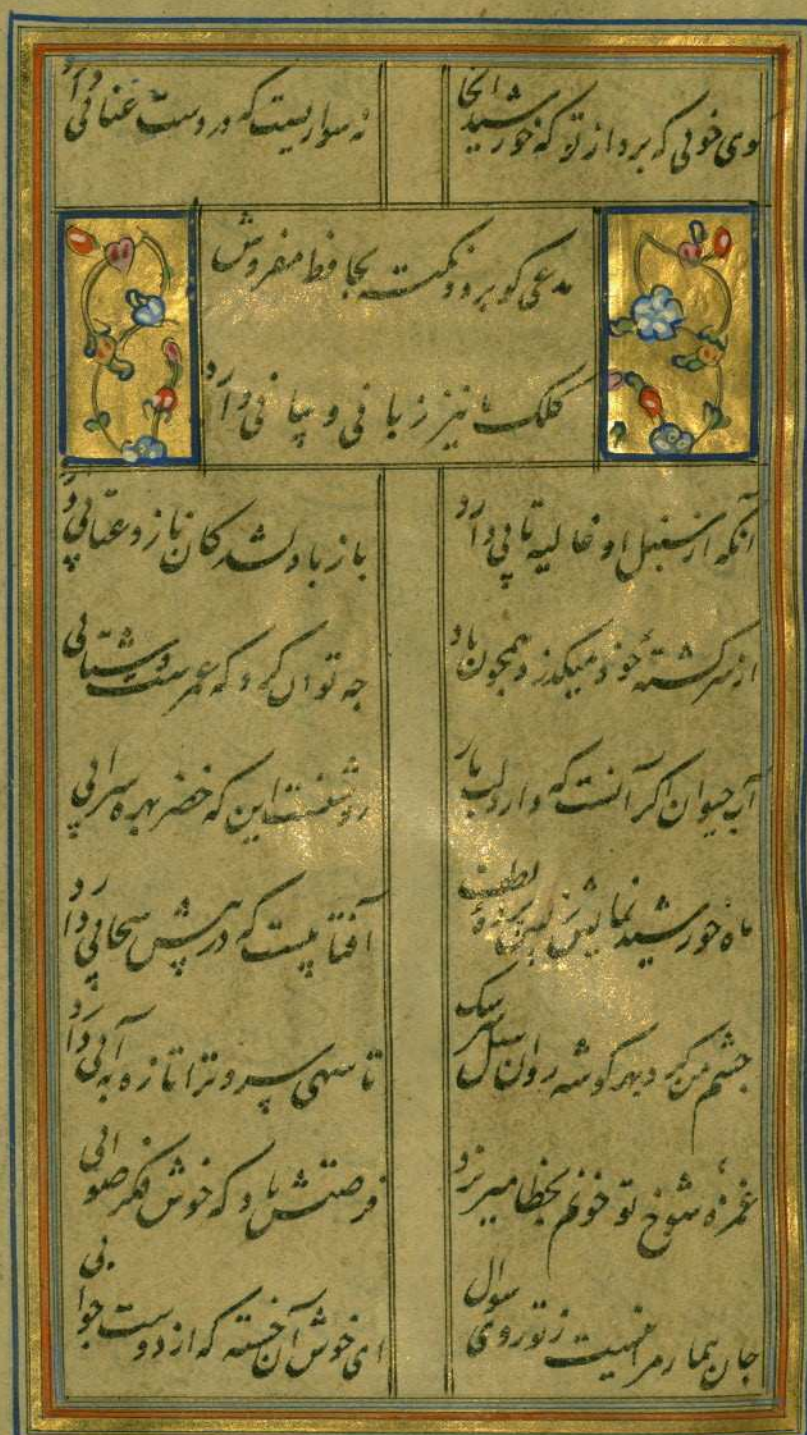 کوی خوبی که برد از تو که خورشید آنجا
نه سواریست که در دست عنانی دارد
مدعی کو برو و نکته بحافظ مفروش
کلک ما نیز زبانی و بیانی دارد
آنکه از سنبل او غالیه تابی دارد
باز با دلشدکان ناز و عتابی دارد
از سر کشتهٔ خود میکذرد همچون باد
چه توان کرد که عمرست و شتابی
آب حیوان اکر آنست که دارد لب یار
روشنست این که خضر بهره سرابی
ماه خورشید نمایش ز پس پردهٔ زلف
آفتابیست که در پیش سحابی دارد
چشم من کرد بهر کوشه روان سیل سرشک
تا سهی سرو ترا تازه بآبی دارد
غمزهٔ شوخ تو خونم بخطا میریزد
فرصتش باد که خوش فکر صوابی
جان بیمار مرا نیست ز تو روی سوال
ای خوش آن خسته که از دوست جوابی